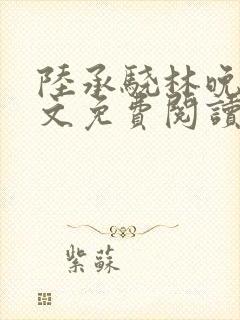 陸承驍林晚
文免費閱讀
紫蘇